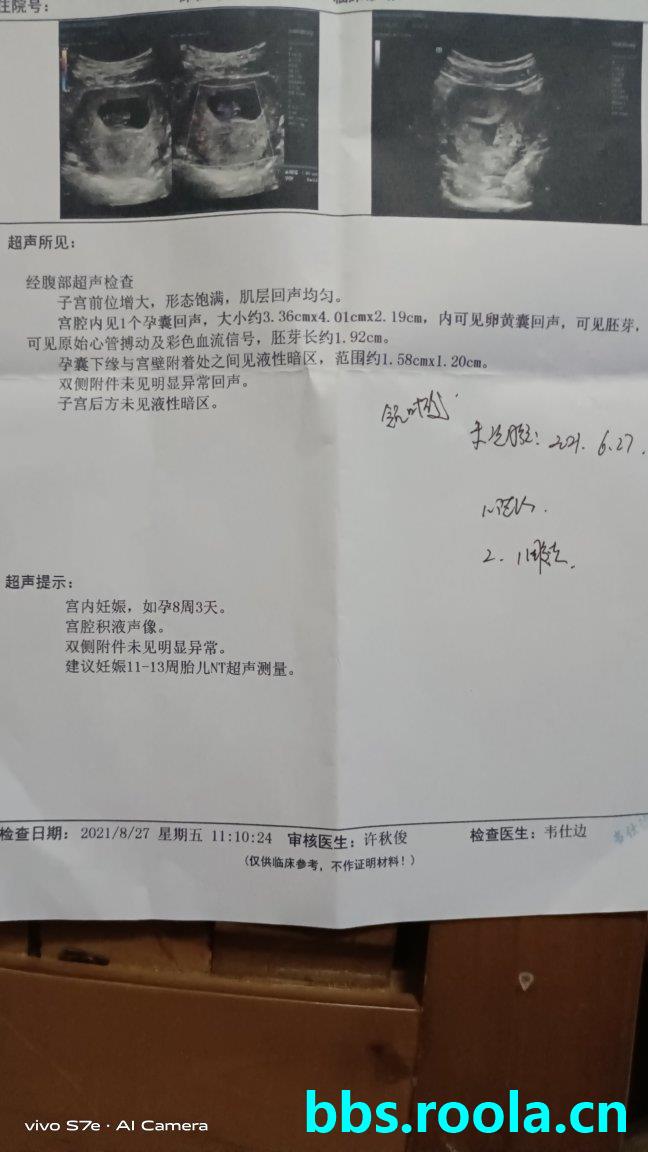 住院号：
超声所见：
经腹部超声检查
子宫前位增大，形态饱满，肌层回声均匀。
宫腔内见1个孕囊回声，大小约3.36cmx4.01cmx2.19cm，内可见卵黄囊回声，可见胚芽，
可见原始心管搏动及彩色血流信号，胚芽长约1.92cm。
孕囊下缘与宫壁附着处之间见液性暗区，范围约1.58cmx1.20cm。
双侧附件未见明显异常回声。
子宫后方未见液性暗区。
末次月经：2021. 6.27.
超声提示：
宫内妊娠，如孕8周3天。
宫腔积液声像。
双侧附件未见明显异常。
建议妊娠11-13周胎儿NT超声测量。
检查日期： 2021/8/27 星期五 11:10:24 审核医生：许秋俊 检查医生：韦仕边
（仅供临床参考，不作证明材料！）
vivo S7e · AI Camera
bbs.roola.cn